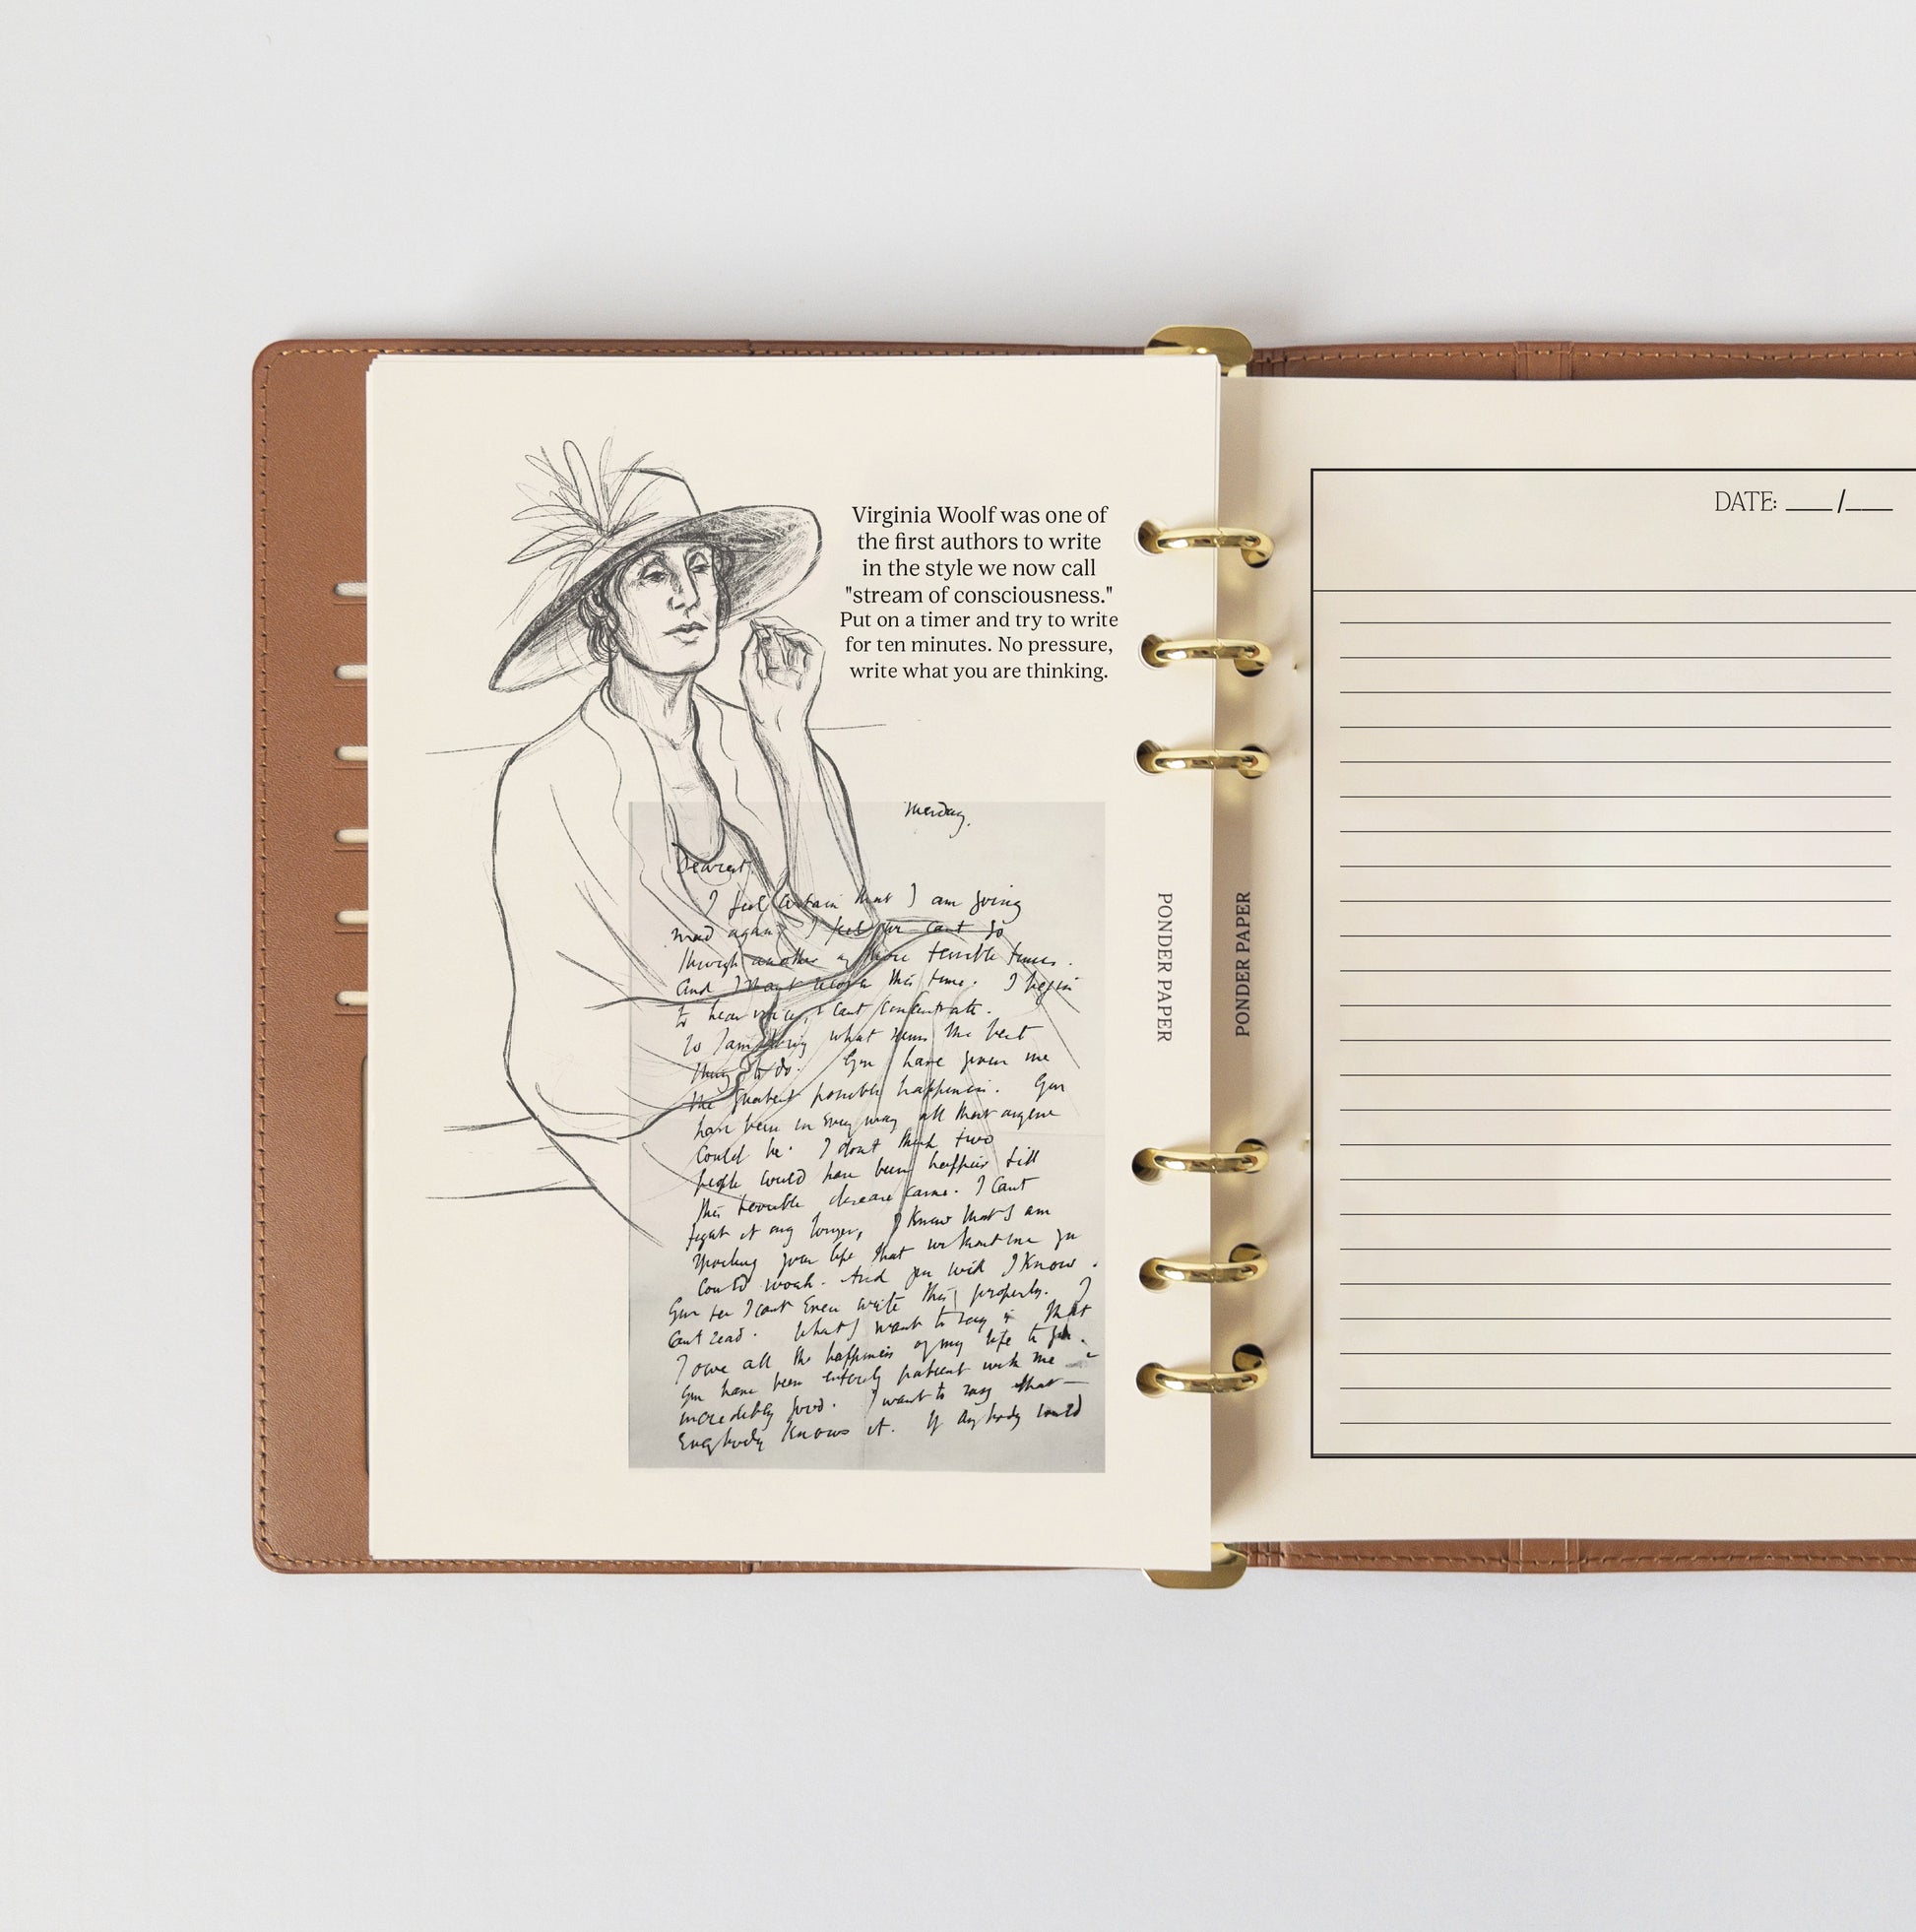 Virginia Woolf was one of
the first authors to write
in the style we now call
"stream of consciousness."
Put on a timer and try to write
for ten minutes. No pressure,
write what you are thinking.
Dearest,
I feel certain that I am going
mad again. I feel we cant go
through another of those terrible times.
And I shant recover this time. I begin
to hear voices, & cant concentrate.
So I am doing what seems the best
thing to do. You have given me
the greatest possible happiness. You
have been in every way all that anyone
could be. I dont think two
people could have been happier till
this terrible disease came. I cant
fight it any longer, I know that I am
spoiling your life, that without me you
could work. And you will I know.
You see I cant even write this properly. I
cant read. What I want to say is that
I owe all the happiness of my life to you.
You have been entirely patient with me &
incredibly good. I want to say that—
everybody knows it. If anybody could
PONDER PAPER
PONDER PAPER
DATE: ___/___